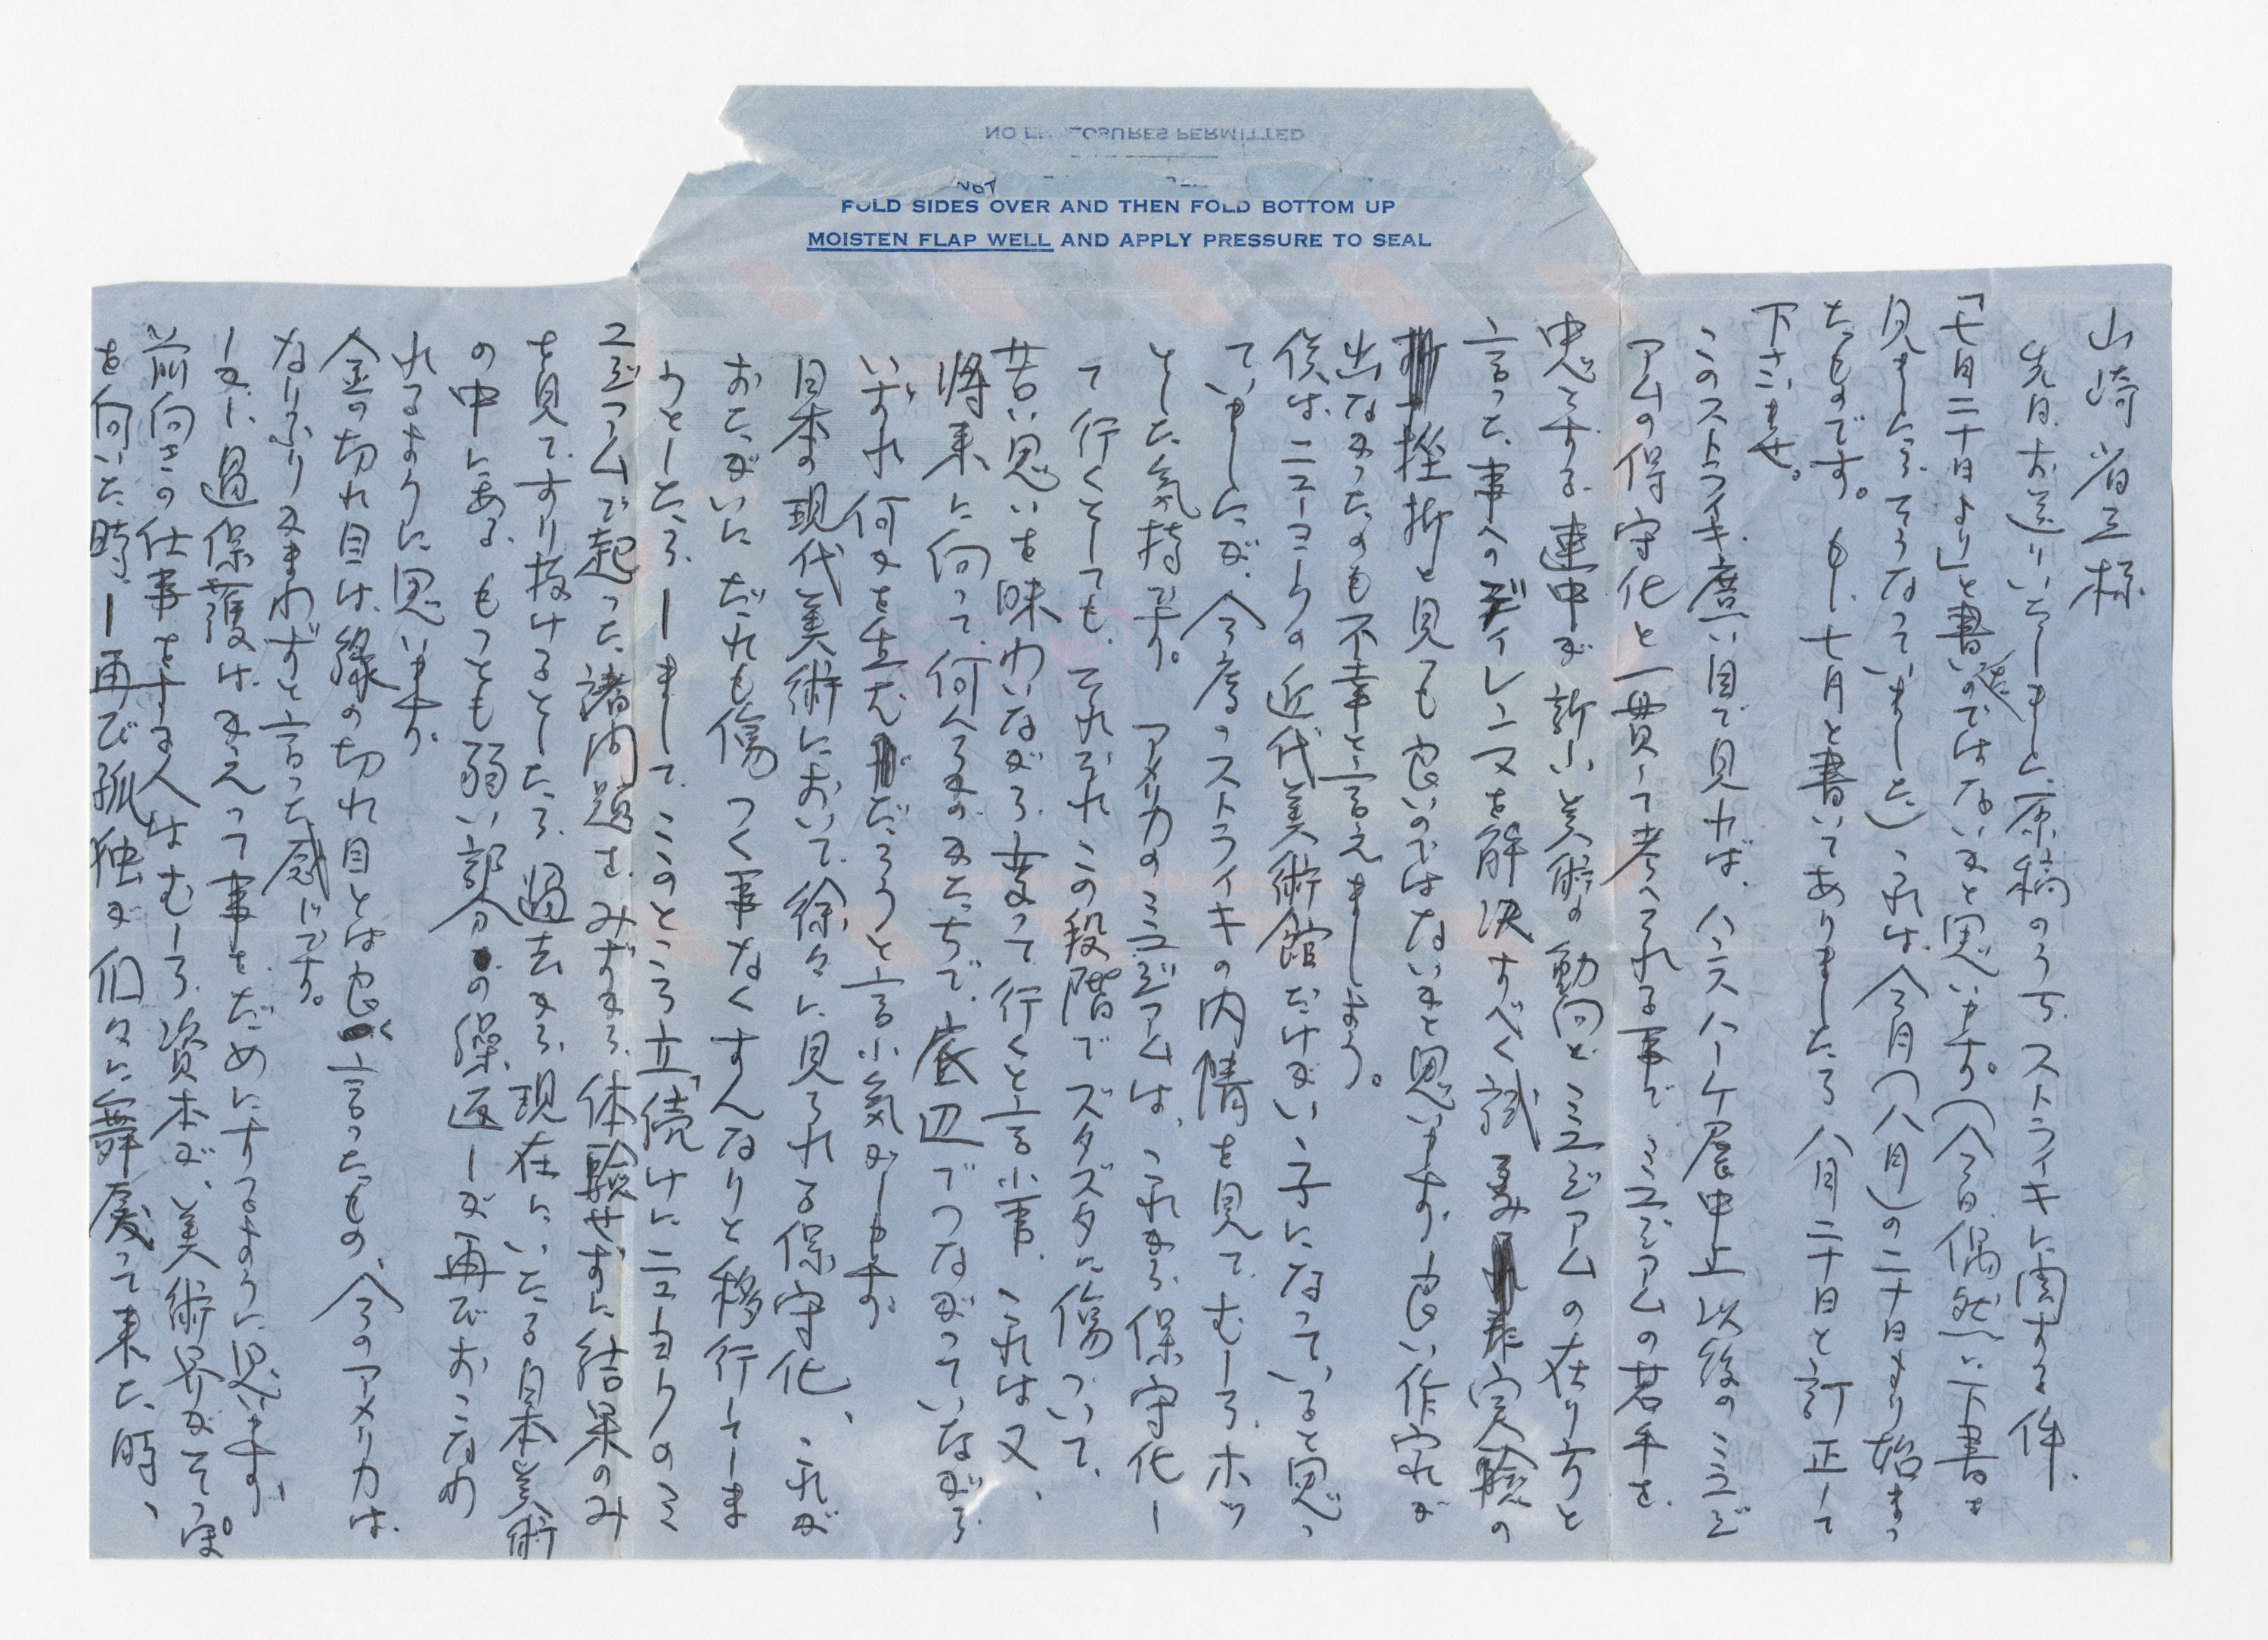 NO ENCLOSURES PERMITTED
FOLD SIDES OVER AND THEN FOLD BOTTOM UP
MOISTEN FLAP WELL AND APPLY PRESSURE TO SEAL
山崎省三様
先日お送りいたしました原稿のうち ストライキに関する件、
「七月二十日より」と書いたのではないかと思います。(今日偶然に下書を
見ましたらそうなっていました)これは、今月(八月)の二十日より始まっ
たものです。もし、七月と書いてありましたら 八月二十日と訂正して
下さいませ。
このストライキ、広い目で見れば、ハンスハーケ展中止以後のミュジ
アムの保守化と一貫して考へられる事で、ミュジアムの若手を
中心とする連中が 新しい美術の動向と ミュジアムの在り方と
言った事へのディレンマを解決すべく試みた実験の
挫折と見ても良いのではないかと思います。良い作家が
出なかったのも不幸と言えましょう。
僕は、ニューヨークの近代美術館だけがいい子になっていると思っ
ていましたが、今度のストライキの内情を見て、むしろ、ホッ
とした気持です。アメリカのミュジアムは、これから保守化し
て行くとしても、それぞれこの段階でズタズタに傷ついて、
苦い思いを味わいながら、変って行くと言う事、これは又、
将来に向って、何らかのかたちで、底辺でつながっていながら
いずれ何かを生むだろうと言う気がします。
日本の現代美術において、徐々に見られる保守化、これが
おたがいにだれも傷つく事なくすんなりと移行してしま
うとしたら、しまして、このところ立続けにニューヨークのミ
ュジアムで起った諸問題を、みずから体験せずに結果のみ
を見て、すり抜けるとしたら、過去から現在にいたる日本美術
の中にある、もっとも弱い部分の繰返しが再びおこなわ
れるように思います。
金の切れ目は、縁の切れ目とは良く言ったもの、今のアメリカは、
なりふりかまわずと言った感じです。
しかし過保護は、かえって事をだめにするように思います。
前向きの仕事をする人はむしろ、資本が、美術界がそっぽ
を向いた時、再び孤独が们々に舞戻って来た時、